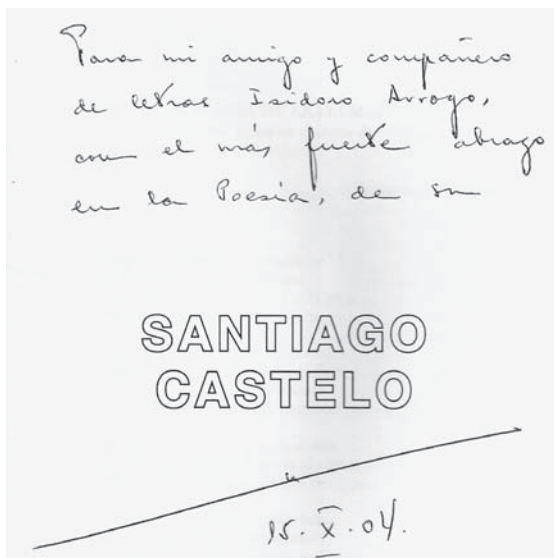 Para mi amigo y compañero
de letras Isidoro Arroyo,
con el más fuerte abrazo
en la Poesía, de su
SANTIAGO
CASTELO
15. X. 04.